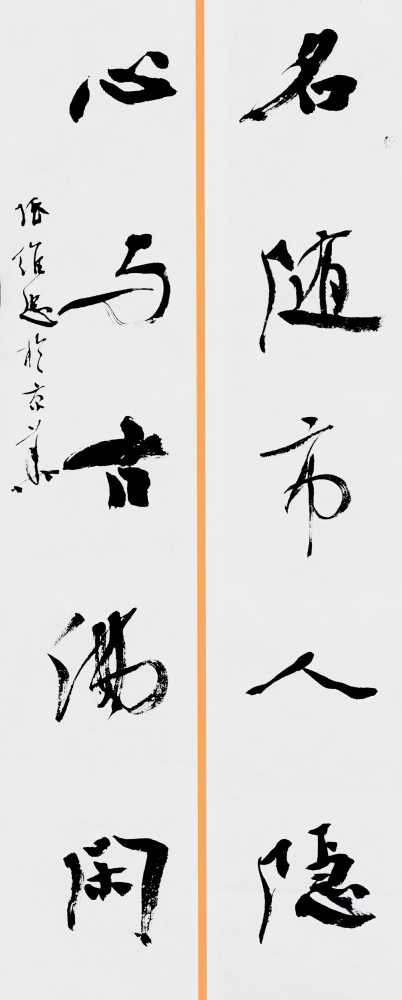 名随市人隐
心与古佛闲
张维忠于京华